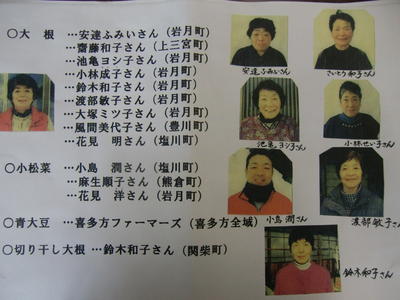 ○大 根 …安達ふみいさん（岩月町）
…齋藤和子さん（上三宮町）
…池亀ヨシ子さん（岩月町）
…小林成子さん（岩月町）
…鈴木和子さん（岩月町）
…渡部敏子さん（岩月町）
…大塚ミツ子さん（岩月町）
…風間美代子さん（豊川町）
…花見 明さん（塩川町）
○小松菜 …小島 潤さん（塩川町）
…麻生順子さん（熊倉町）
…花見 洋さん（岩月町）
○青大豆 …喜多方ファーマーズ（喜多方全域）
○切り干し大根 …鈴木和子さん（関柴町）
安達ふみいさん
さいとう和子さん
池亀ヨシ子さん
小林せい子さん
小島潤さん
渡部敏子さん
鈴木和子さん